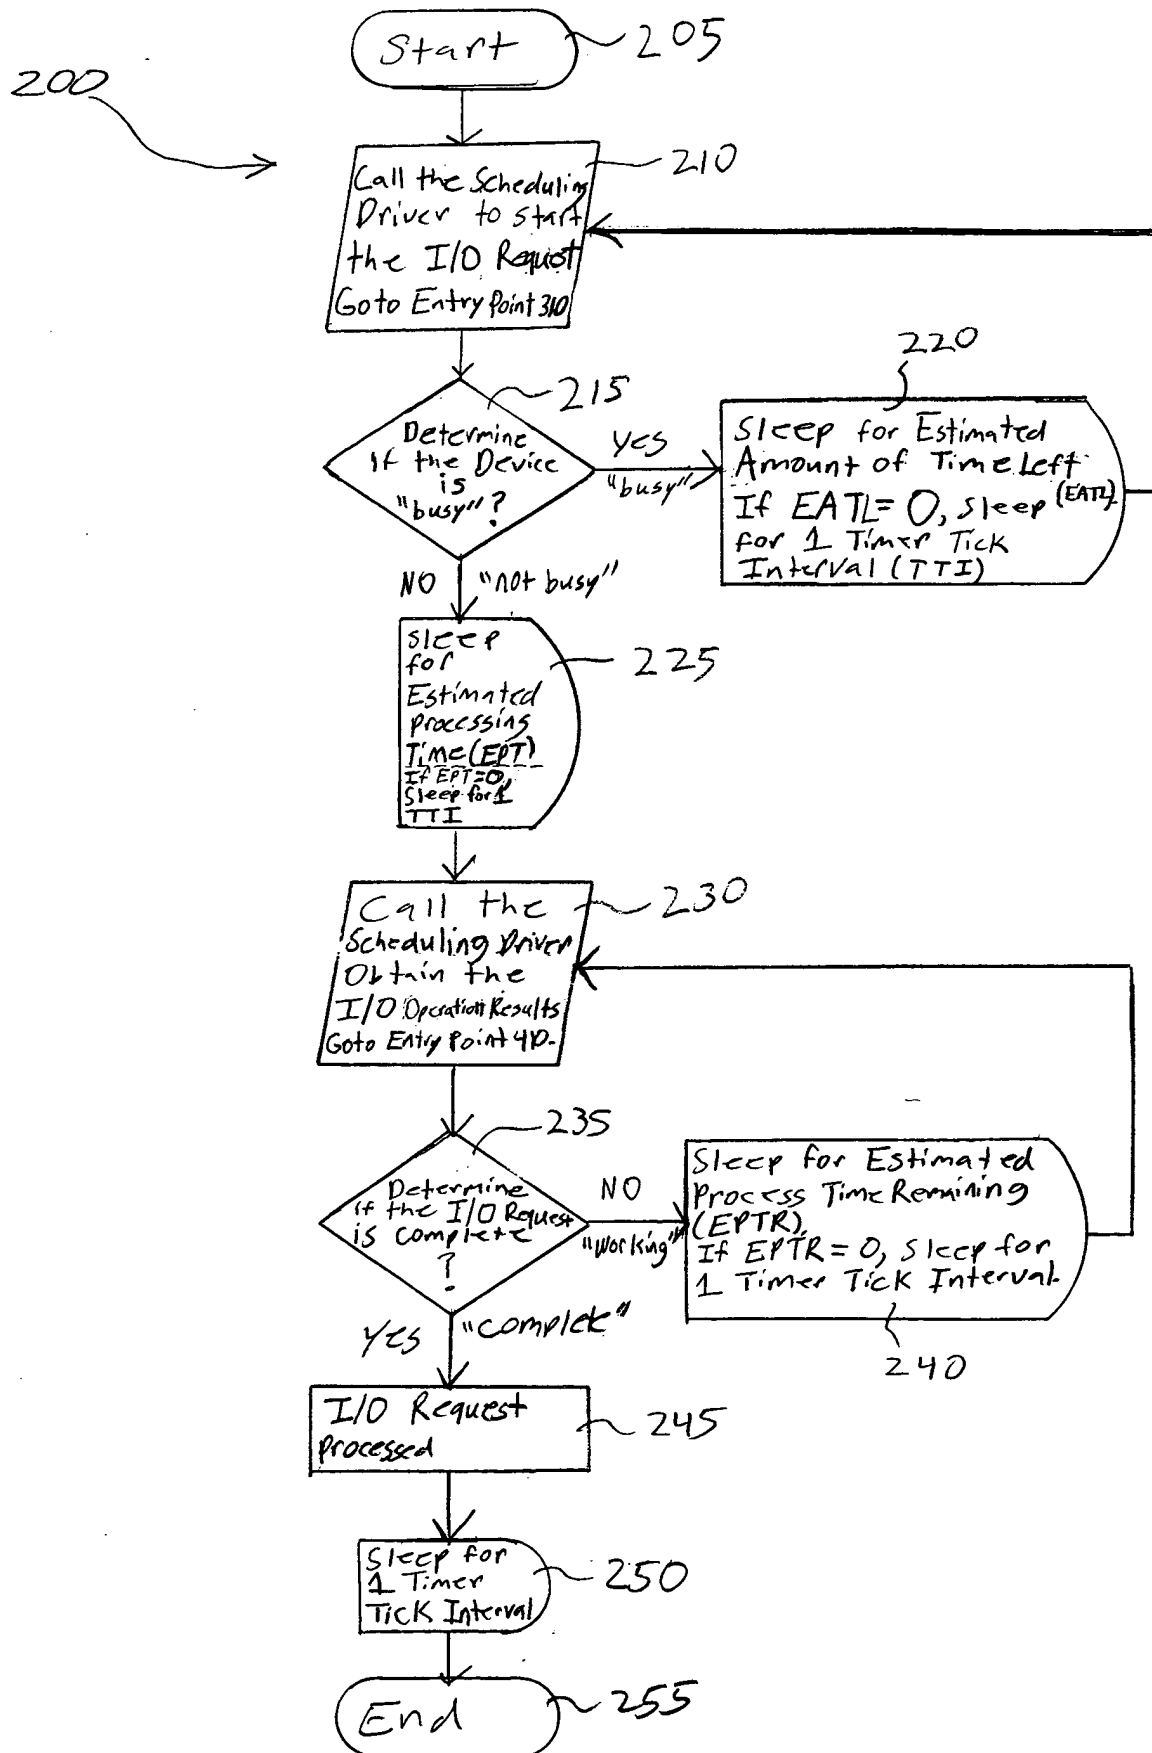 Start
205
200
210
Call the Scheduling
Driver to start
the I/O Request
Goto Entry Point 310
215
Determine
If the Device
is
"busy"?
Yes
"busy"
220
Sleep for Estimated
Amount of Time Left
(EATL)
If EATL = 0, Sleep
for 1 Timer Tick
Interval (TTI)
NO "not busy"
225
Sleep
for
Estimated
Processing
Time (EPT)
If EPT=0,
Sleep for 1
TTI
230
Call the
Scheduling Driver
Obtain the
I/O Operation Results
Goto Entry Point 410.
235
Determine
if the I/O Request
is complete
?
NO
"Working"
Sleep for Estimated
Process Time Remaining
(EPTR)
If EPTR = 0, Sleep for
1 Timer Tick Interval.
240
Yes "Complete"
I/O Request
Processed
245
Sleep for
1 Timer
Tick Interval
250
End
255